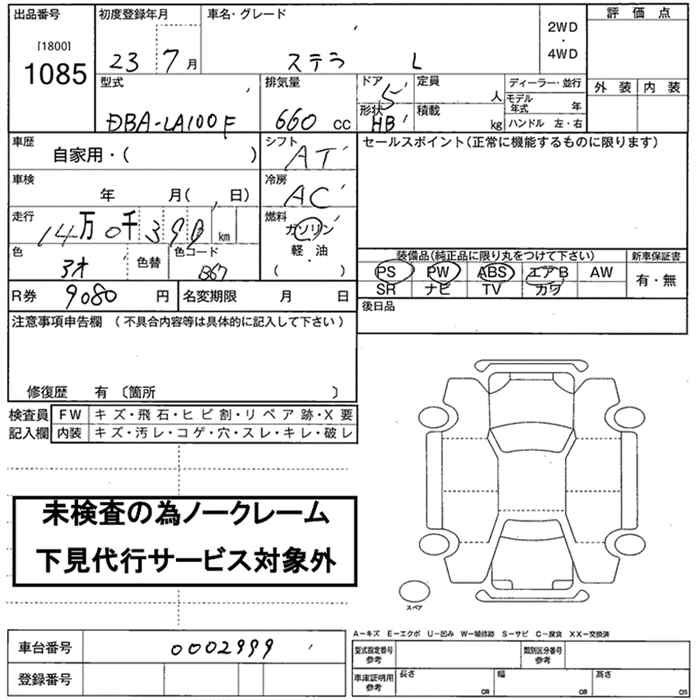 出品番号 初度登録年月 車名・グレード 評価点
[1800]
1085
23 7月 ステラ L
2WD
・
4WD
外装 内装
型式 排気量 ドア 定員 ディーラー・並行
DBA-LA100F 660 cc 5 人 モデル年式 年
形状 HB 積載 kg ハンドル 左・右
車歴 シフト セールスポイント(正常に機能するものに限ります)
自家用・( ) AT
車検 冷房
年 月( 日) AC
走行 燃料
14万0千390km ガソリン
軽・油
( )
色 色替 色コード
アオ B67
装備品(純正品に限り丸をつけて下さい) 新車保証書
PS PW ABS エアB AW 有・無
SR ナビ TV カワ
R券 9080 円 名変期限 月 日
後日品
注意事項申告欄 (不具合内容等は具体的に記入して下さい)
修復歴 有 〔箇所 〕
検査員 FW キズ・飛石・ヒビ割・リペア跡・X要
記入欄 内装 キズ・汚レ・コゲ・穴・スレ・キレ・破レ
未検査の為ノークレーム
下見代行サービス対象外
スペア
A-キズ E-エクボ U-凹み W-補修跡 S-サビ C-腐食 XX-交換済
車台番号 0002999
登録番号
型式指定番号 参考 類別区分番号 参考
車庫証明用 参考 長さ cm 幅 cm 高さ cm